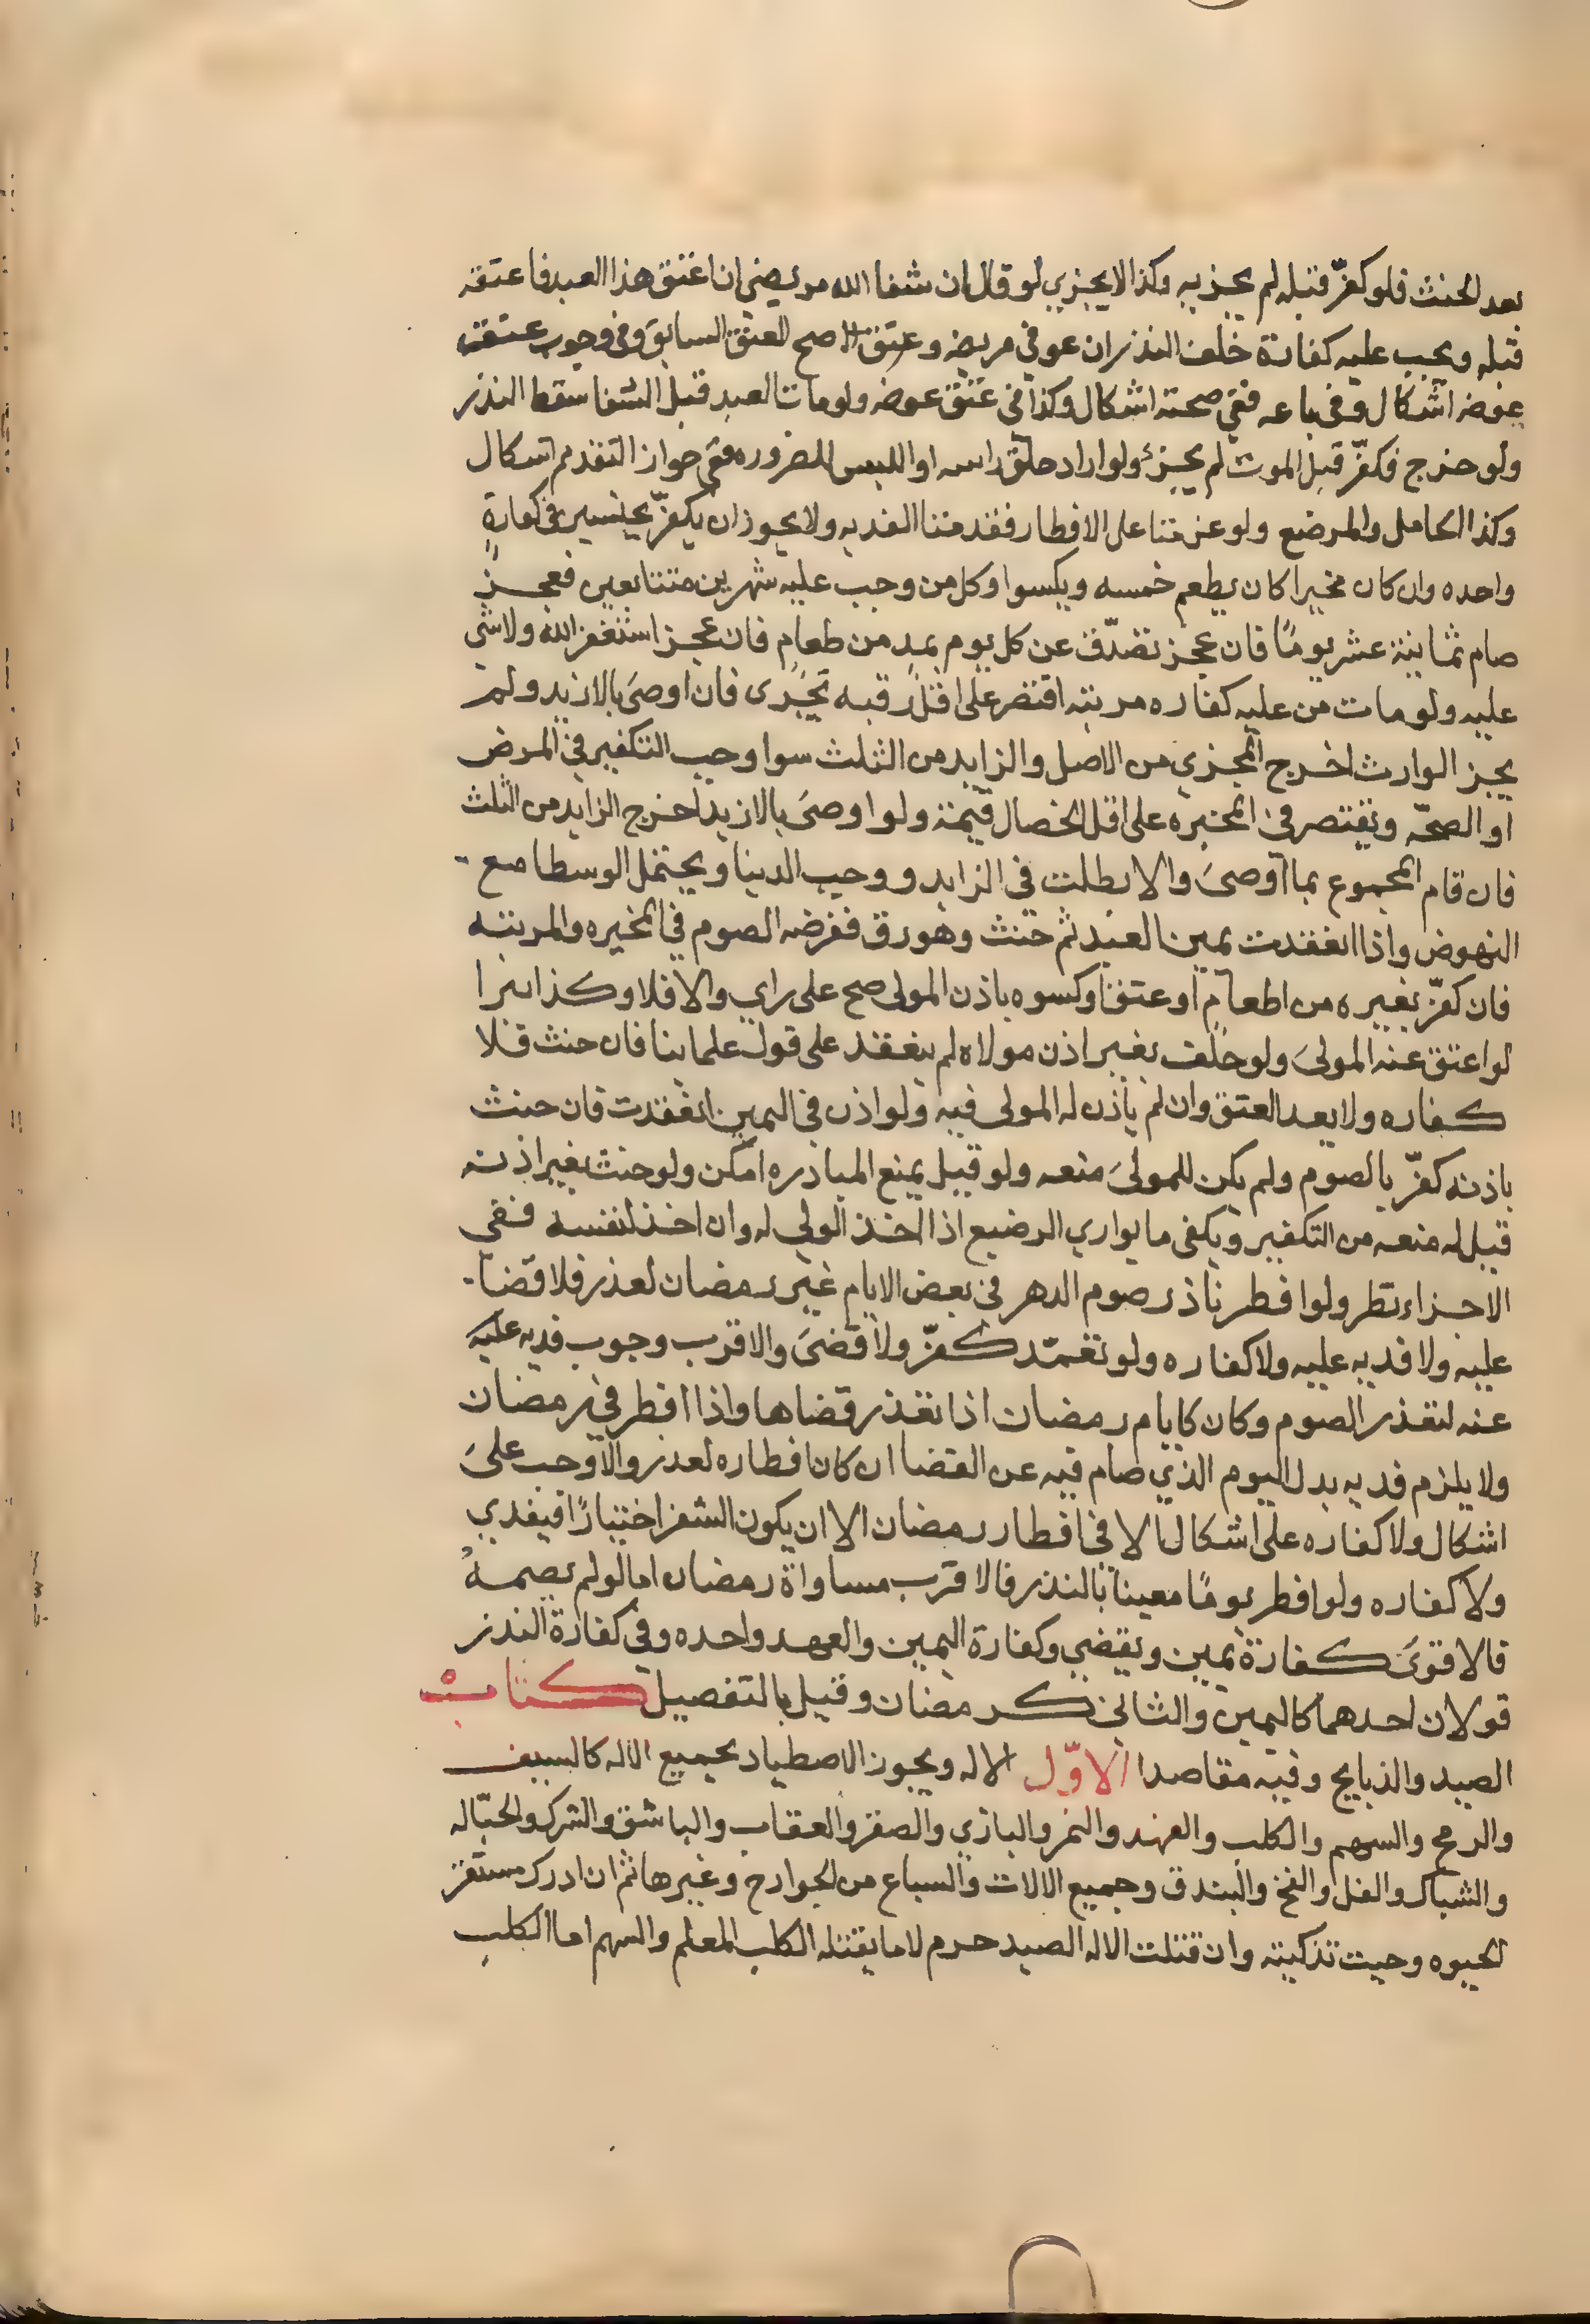 بعد الحنث فلو كفّر قبله لم يجز به وكذا لا يجزي لو قال ان شفا الله مريضي ان اعتق هذا العبد فاعتقه
قبله ويجب عليه كفارة خلف النذر ان عوفي مريضه وعتق الا صح العتق السابق وفي وجوب عتقه
عوضه اشكال وفي باعه ففي صحته اشكال وكذا في عتق عوضه ولو مات العبد قبل الشفا سقط النذر
ولو جرح فكفّر قبل الموت لم يجزئ ولو اراد حلق راسه او اللبس للضروره ففي جواز التقديم اشكال
وكذا الحامل والمرضع ولو عزمتا على الافطار فقدمتا الفديه ولا يجوز ان يكفّر بجنسين في كفارةٍ
واحده وان كان مخيرا كان يطعم خمسه ويكسوا وكل من وجب عليه شهرين متتابعين فعجز
صام ثمانية عشر يومًا فان عجز تصدّق عن كل يوم بمد من طعام فان عجز استغفر الله ولا شي
عليه ولو مات من عليه كفاره مرتبه اقتصر على اقل رقبه تجزى فان اوصى بالازيد ولم
يجز الوارث اخرج المجزي من الاصل والزايد من الثلث سوا وجب التكفير في المرض
او الصحّه ويقتصر في المخيره على اقل الخصال قيمة ولو اوصى بالازيد اخرج الزايد من الثلث
فان قام المجموع بما اوصى والا بطلت في الزايد ووجب الدنيا ويحتمل الوسطا مع
النهوض واذا انعقدت يمين العبد ثم حنث وهو رق ففرضه الصوم في المخيره والمرتبه
فان كفّر بغيره من اطعام او عتق او كسوه باذن المولى صح على راي والا فلا وكذا يبرا
لو اعتق عنه المولى ولو حلف بغير اذن مولاه لم ينعقد على قول علماينا فان حنث فلا
كفاره ولا بعد العتق وان لم ياذن له المولى فيه ولو اذن في اليمين انعقدت فان حنث
باذنه كفّر بالصوم ولم يكن للمولى منعه ولو قيل يمنع المبادره امكن ولو حنث بغير اذنه
قيل له منعه من التكفير ويكفى ما يواري الرضيع اذا اخذ الولى له وان اخذ لنفسه ففي
الاجزاء نظر ولو افطر ناذر صوم الدهر في بعض الايام غير رمضان لعذر فلا قضا
عليه ولا فديه عليه ولا كفاره ولو تعمّد كفّر ولا قضى والاقرب وجوب فديه عليه
عنه لتعذر الصوم وكان كايام رمضان اذا تعذر قضاها واذا افطر في رمضان
ولا يلزم فديه بدل اليوم الذي صام فيه عن القضا ان كان افطاره لعذر والا وجب على
اشكال ولا كفاره على اشكال الا في افطار رمضان الا ان يكون السفر اختيارًا فيفدي
ولا كفاره ولو افطر يومًا معينا بالنذر فالاقرب مساواة رمضان اما لو لم يصمه
فالاقوى كفارة يمين ويقضي وكفارة اليمين والعهد واحده وفي كفارة النذر
قولان احدهما كاليمين والثاني كرمضان وقيل بالتفصيل كتاب
الصيد والذبايح وفيه مقاصد الاوّل الاله ويجوز الاصطياد بجميع الاله كالسيف
والرمح والسهم والكلب والفهد والنمر والبازي والصقر والعقاب والباشق والشرك والحبّاله
والشباك والفل والفخ والبندق وجميع الالات والسباع من الجوارح وغيرها ثم ان ادرك مستقر
الحيوه وجبت تذكيته وان قتلت الاله الصيد حرم لا ما يقتله الكلب المعلم والسهم اما الكلب